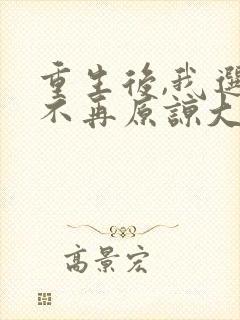 重生後,我選
不再原諒大
高景宏